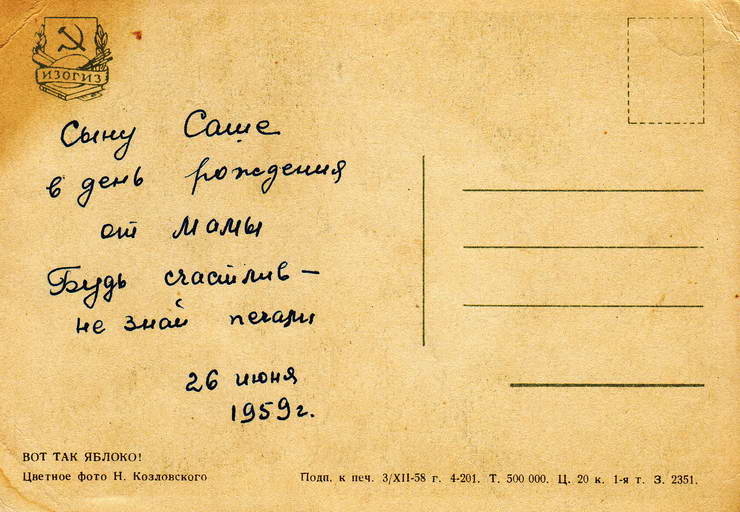 ИЗОГИЗ
Сыну Саше
в день рождения
от мамы
Будь счастлив —
не знай печали
26 июня
1959 г.
ВОТ ТАК ЯБЛОКО!
Цветное фото Н. Козловского
Подп. к печ. 3/XII-58 г. 4-201. Т. 500 000. Ц. 20 к. 1-я т. З. 2351.